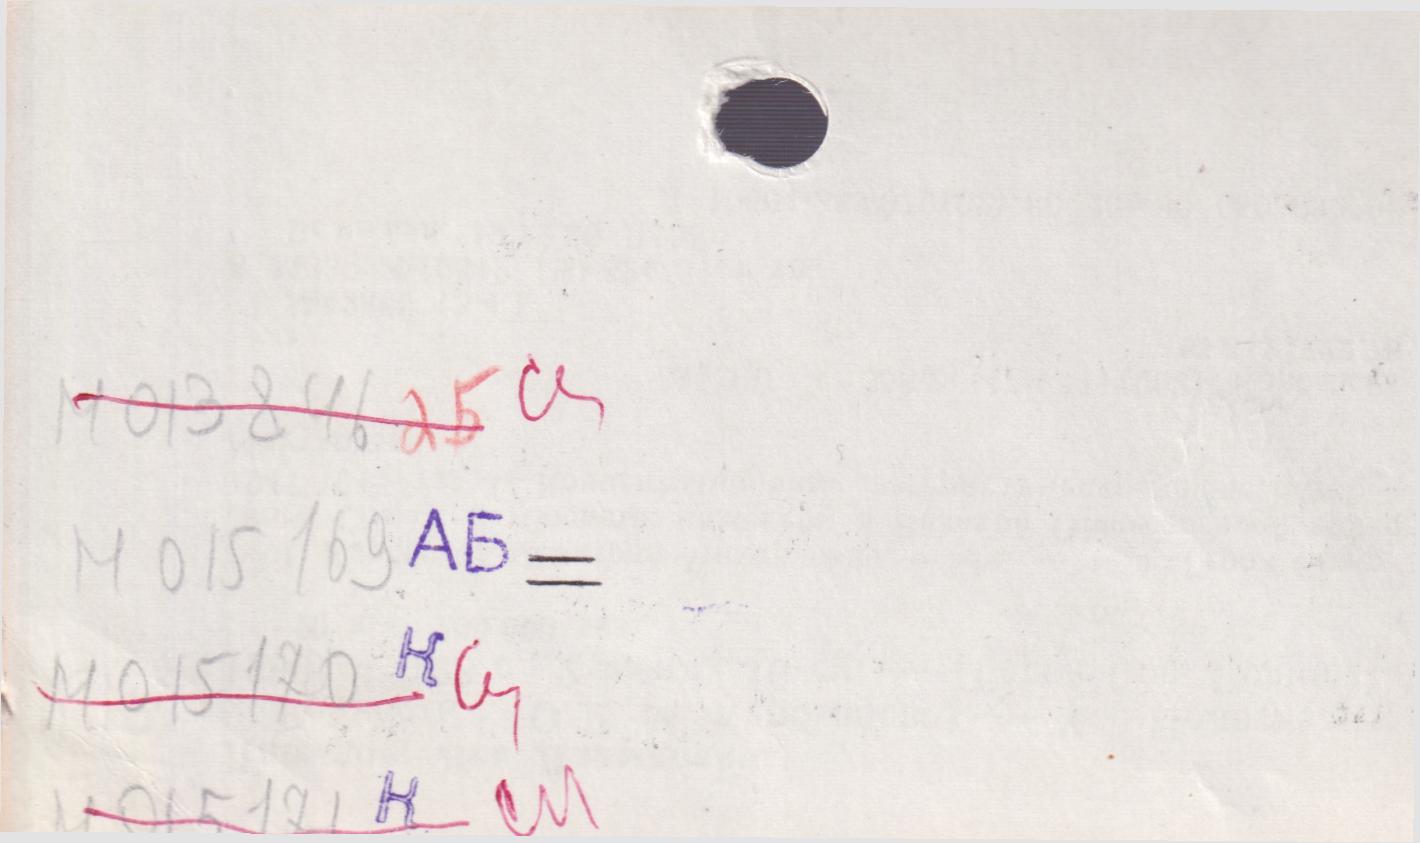 М 013846 25 Сц
М 015 169 АБ =
М 015170 К Сц
М 015171 К СП